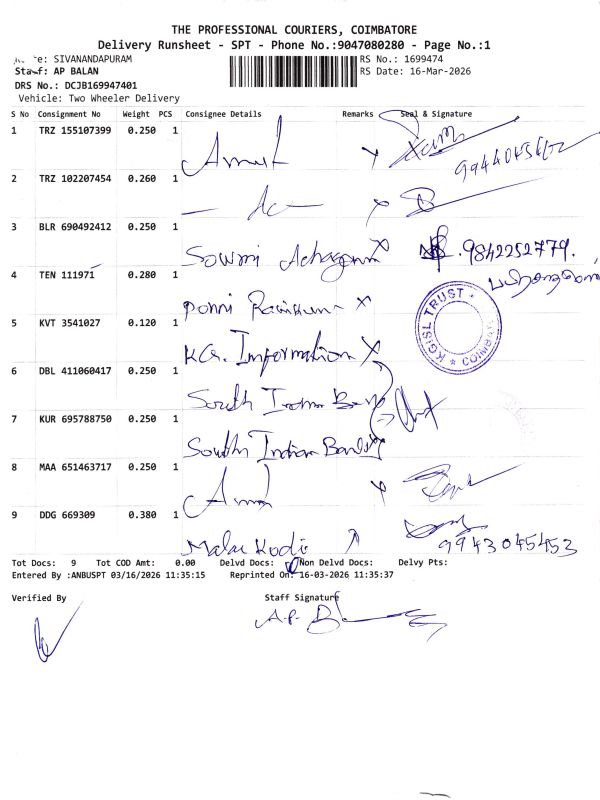 THE PROFESSIONAL COURIERS, COIMBATORE
Delivery Runsheet - SPT - Phone No.:9047080280 - Page No.:1
SIVANANDAPURAM
RS No.: 1699474
Staff: AP BALAN
RS Date: 16-Mar-2026
DRS No.: DCJB169947401
Vehicle: Two Wheeler Delivery
S No Consignment No Weight PCS Consignee Details Remarks Seal & Signature
1 TRZ 155107399 0.250 1
2 TRZ 102207454 0.260 1
3 BLR 690492412 0.250 1
Sowmi 9842252779.
4 TEN 111971 0.280 1
Ponni
KGISL TRUST * COIMBA
5 KVT 3541027 0.120 1
KG. Information X
6 DBL 411060417 0.250 1
South Indian Bank
7 KUR 695788750 0.250 1
South Indian Bank
8 MAA 651463717 0.250 1
9 DDG 669309 0.380 1
Malar Kodi 9943045453
Tot Docs: 9 Tot COD Amt: 0.00 Delvd Docs: Non Delvd Docs: Delvy Pts:
Entered By :ANBUSPT 03/16/2026 11:35:15 Reprinted On: 16-03-2026 11:35:37
Verified By Staff Signature
A.P. B